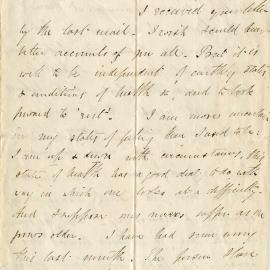 I received your letter
by the last mail. I wish I could hear
better accounts of you all. But it is
well to be independent of earthly states
& conditions of health &c; and to look
forward to "rest". I am more uncertain
in my states of feeling than I used to be.
I am up & down with circumstances, this
state of health has a good deal to do with
way in which one looks at a difficulty.
And I suppose one's nerves suffer as one
grows older. I have had some worry
this last month. The person I have